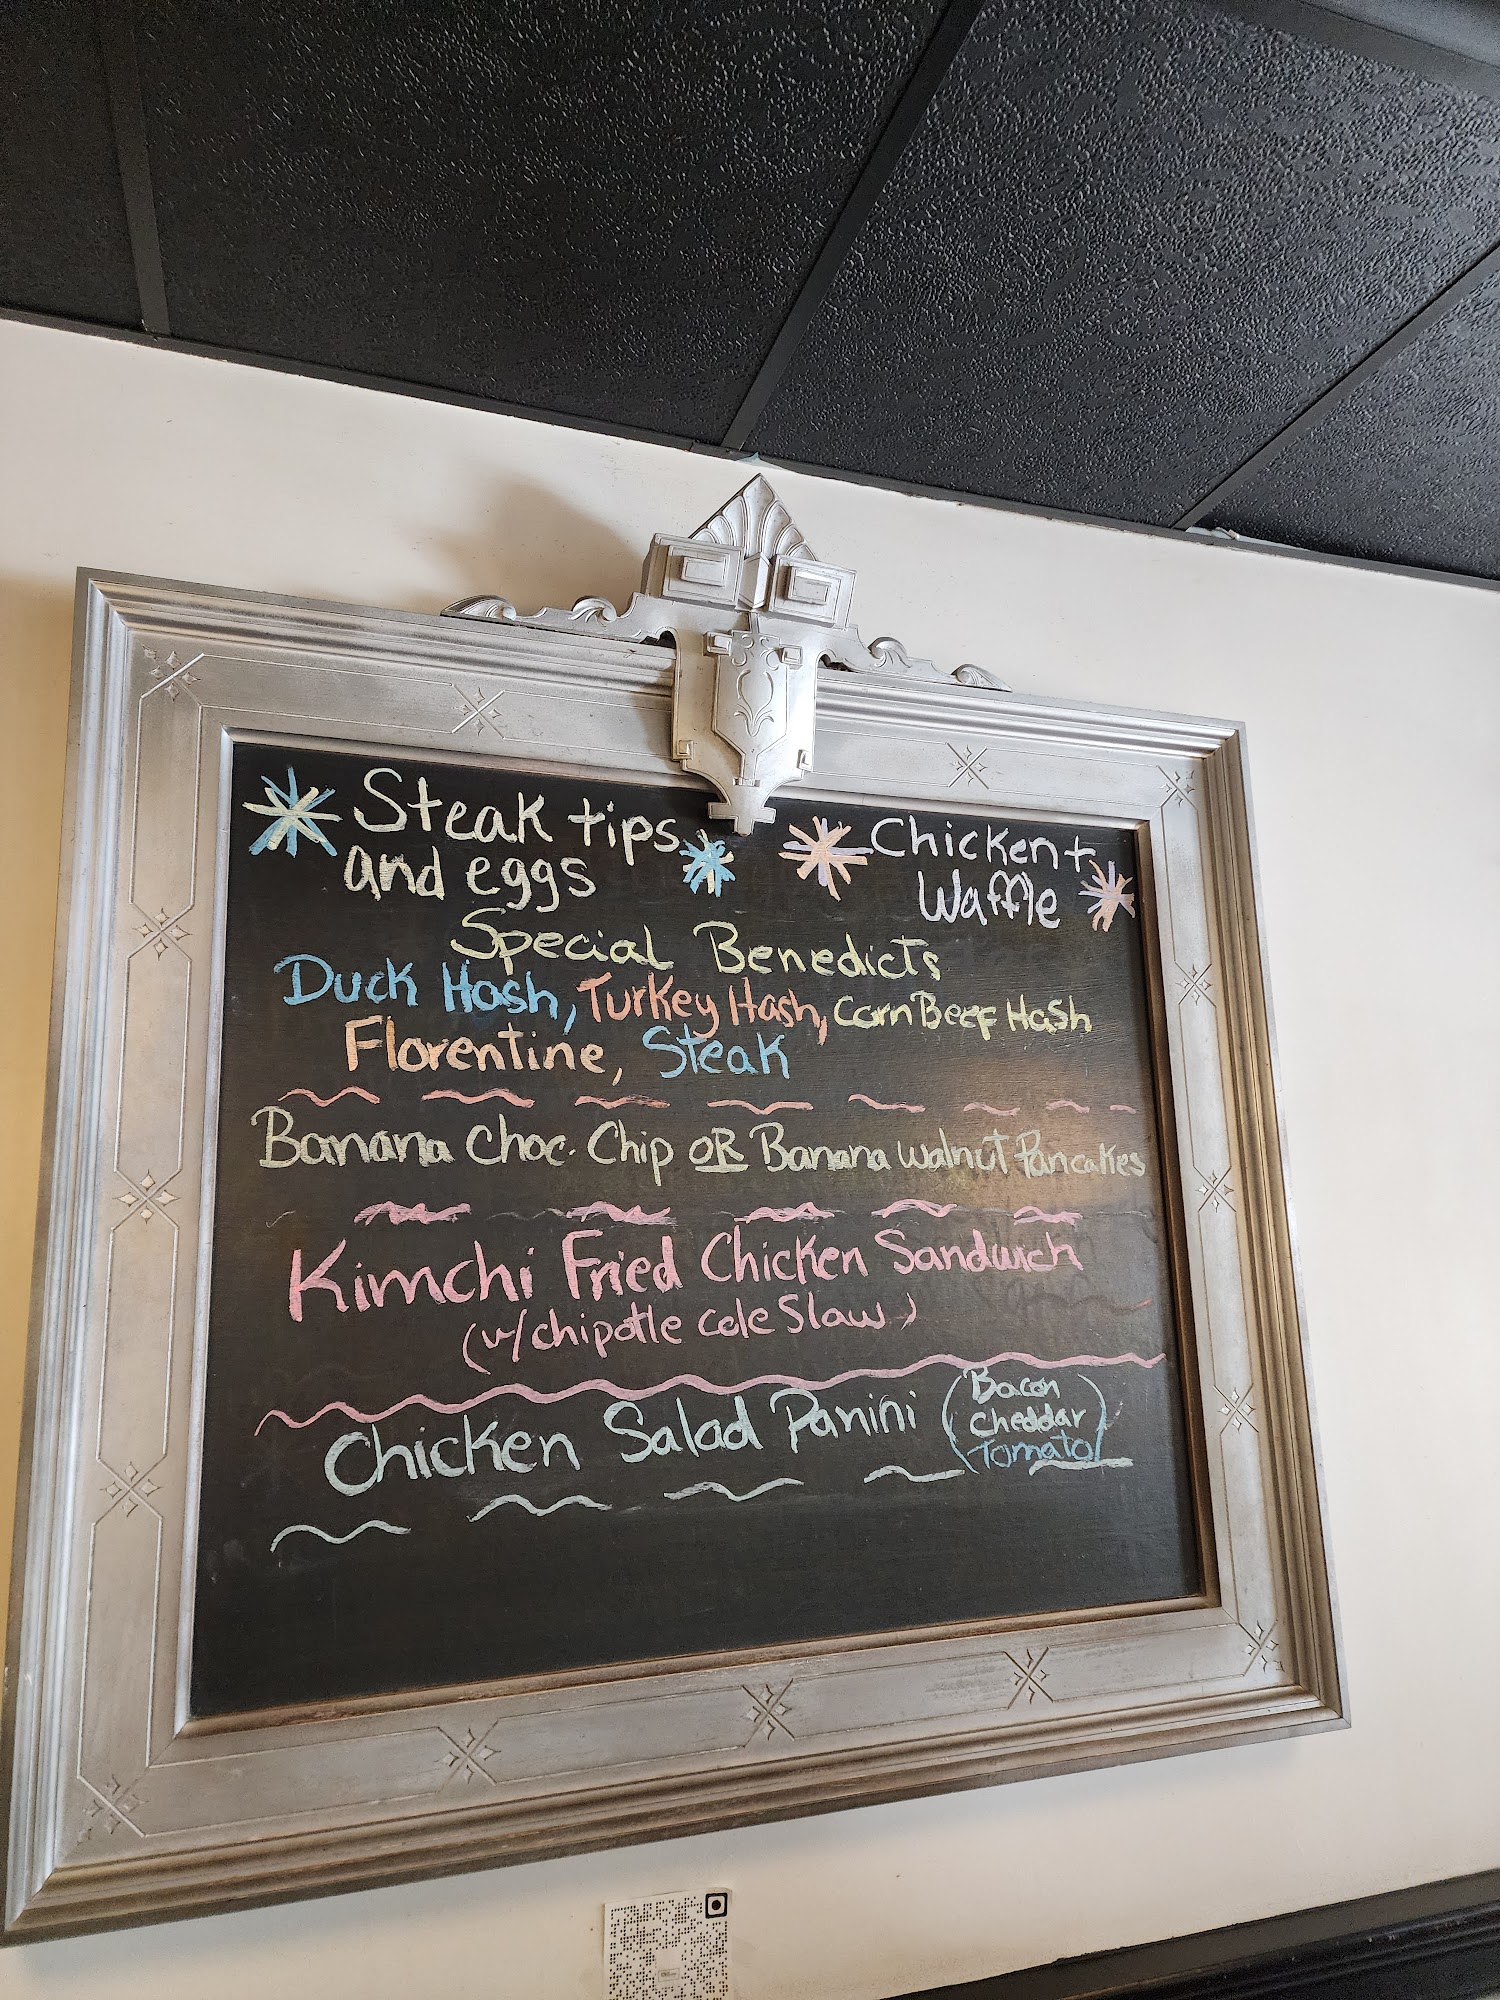 Steak tips
and eggs
Chicken +
Waffle
Special Benedicts
Duck Hash, Turkey Hash, Corn Beef Hash
Florentine, Steak
Banana Choc. Chip OR Banana Walnut Pancakes
Kimchi Fried Chicken Sandwich
(w/chipotle cole Slaw)
Chicken Salad Panini (Bacon
Cheddar
Tomato)